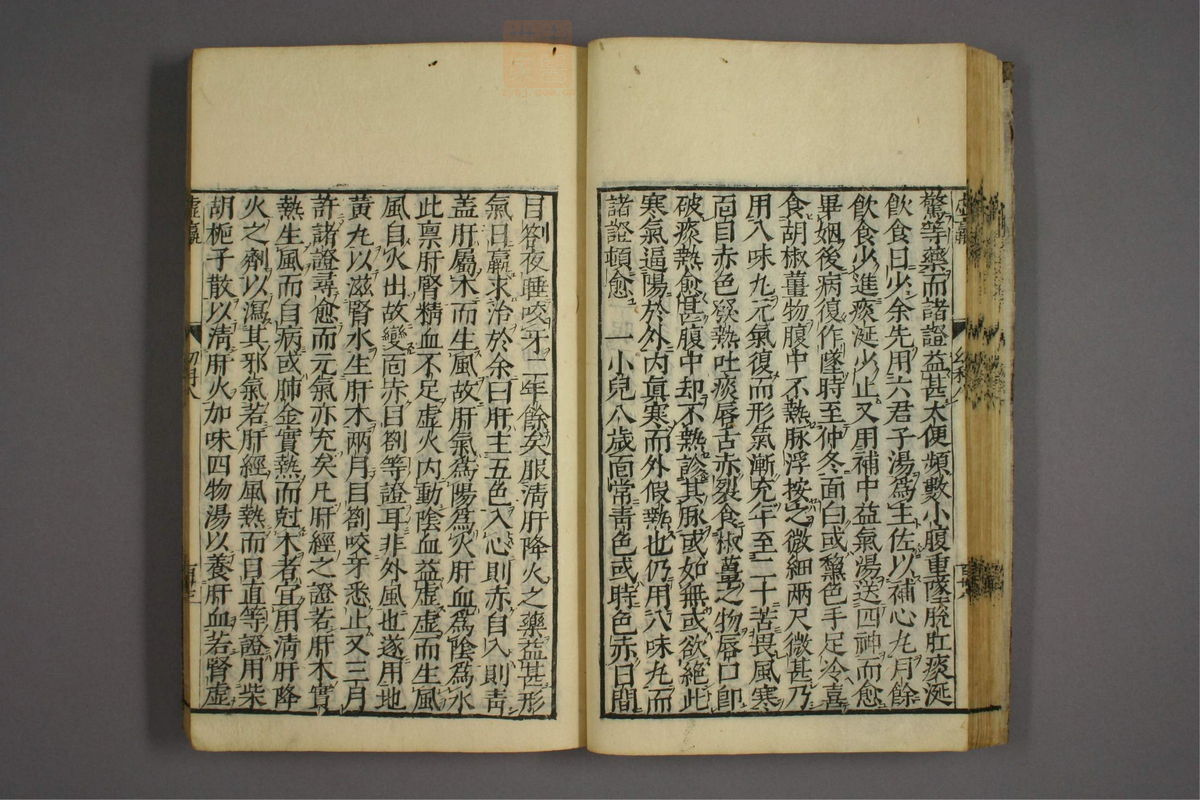 驚等藥而諸證益甚大便頻數小腹重墜脫肛痰涎
飲食日少余先用六君子湯爲主佐以補心丸月餘
飲食少進痰涎少止又用補中益氣湯送四神而愈
畢姻後病復作墜時至仲冬面白或黧色手足冷喜
食胡椒薑物腹中不熱脉浮按之微細兩尺微甚乃
用八味丸元氣復而形氣漸充年至二十苦畏風寒
面目赤色發熱吐痰唇舌赤裂食椒薑之物唇口即
破痰熱愈甚腹中却不熱診其脉或如無或欲絶此
寒氣逼陽於外内眞寒而外假熱也仍用八味丸而
諸證頓愈 一小兒八歲面常青色或時色赤日間
目劄夜睡咬牙二年餘矣服清肝降火之藥益甚形
氣日羸求治於余曰肝主五色入心則赤自入則青
蓋肝屬木而生風故肝氣爲陽爲火肝血爲陰爲水
此禀肝腎精血不足虚火内動陰血益虚虚而生風
風自火出故變面赤目劄等證耳非外風也遂用地
黃丸以滋腎水生肝木兩月目劄咬牙悉止又三月
許諸證尋愈而元氣亦充矣凡肝經之證若肝木實
熱生風而自病或肺金實熱而尅木者宜用清肝降
火之劑以瀉其邪氣若肝經風熱而目直等證用柴
胡梔子散以清肝火加味四物湯以養肝血若腎虚
虚羸